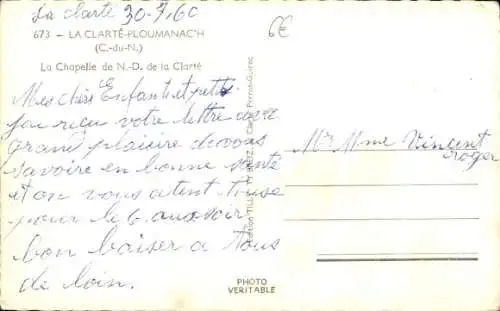 La clarté 30-7-60
6€
673 - LA CLARTÉ-PLOUMANAC'H
(C.-du-N.)
La Chapelle de N.-D. de la Clarté
Mes chère Enfants et petits
j'ai reçu votre lettre avec
grand plaisire de vous
savoire en bonne santé
et on vous atent touse
pour le 6 au soir
bon baiser a tous
de loin.
Mr Mme Vincent
roger
PHOTO
VERITABLE